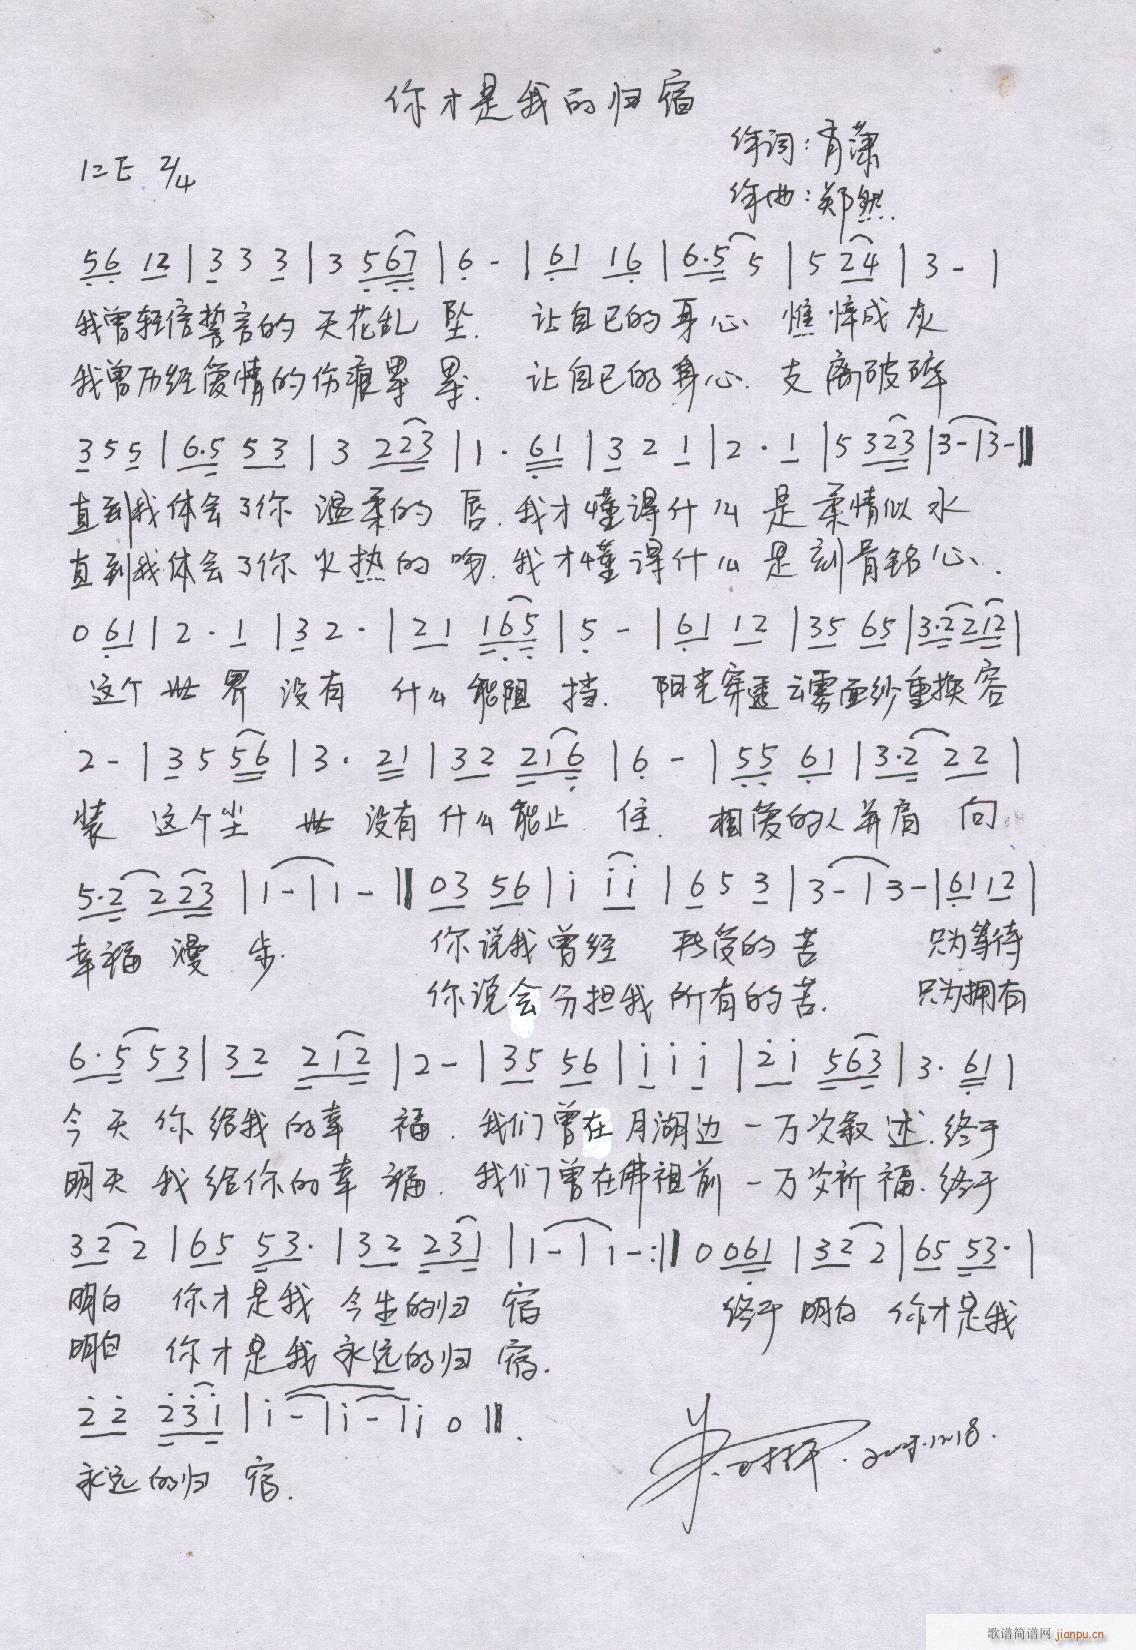 你才是我的归宿
作词：肖潇
1=E 2/4
作曲：郑然
56 12 | 3 3 3 | 3 567 | 6 - | 61 16 | 6·5 5 | 5 24 | 3 - |
我曾轻信誓言的 天花乱 坠. 让自己的身心 憔悴成 灰
我曾历经爱情的伤痕累 累. 让自己的身心. 支离破碎
3 5 5 | 6·5 53 | 3 223 | 1· 61 | 3 2 1 | 2· 1 | 5 323 | 3-|3-‖
直到我体会了你 温柔的 唇. 我才懂得什么 是柔情似水
直到我体会了你火热的 吻. 我才懂得什么 是刻骨铭心.
0 61 | 2· 1 | 3 2· | 21 165 | 5 - | 61 12 | 35 65 | 3·2212 |
这个 世 界 没有 什么能阻 挡. 阳光穿透云雾面纱重换容
2 - | 3 5 56 | 3· 21 | 32 216 | 6 - | 55 61 | 3·2 22 |
装 这个尘 世 没有什么能止 住. 相爱的人并肩 向
5·2 223 | 1-|1-‖ 03 56 | i ii | 6 5 3 | 3-|3-| 61 12 |
幸福 漫 步. 你说我曾经 所受的苦 只为等待
你说会分担我所有的苦. 只为拥有
6·5 53 | 32 212 | 2- | 35 56 | i i i | 2i 563 | 3· 61 |
今天你给我的幸 福. 我们曾在月湖边 一万次叙 述. 终于
明天 我给你的幸 福. 我们曾在佛祖前 一万次祈福. 终于
32 2 | 65 53· | 32 231 | 1-|1-:‖ 0 061 | 32 2 | 65 53· |
明白 你才是我 今生的归 宿 终于 明白 你才是我
明白 你才是我永远的归 宿.
22 23i | i-|i-|i 0 ‖.
永远的归 宿.
歌谱简谱网 jianpu.cn